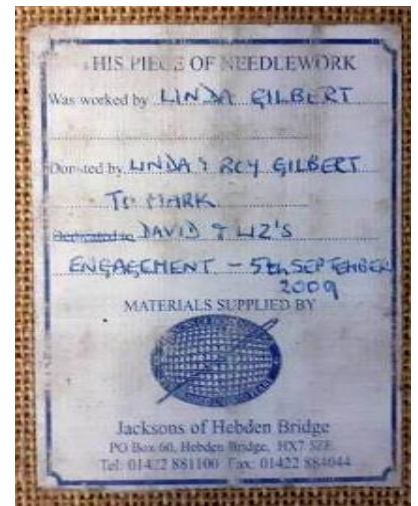 THIS PIECE OF NEEDLEWORK
Was worked by LINDA GILBERT
Donated by LINDA & ROY GILBERT
TO MARK
Dedicated to DAVID & LIZ'S
ENGAGEMENT - 5th SEPTEMBER
2009
MATERIALS SUPPLIED BY
Jacksons of Hebden Bridge
PO Box 60, Hebden Bridge, HX7
Tel: 01422 881100 Fax: 01422 884044